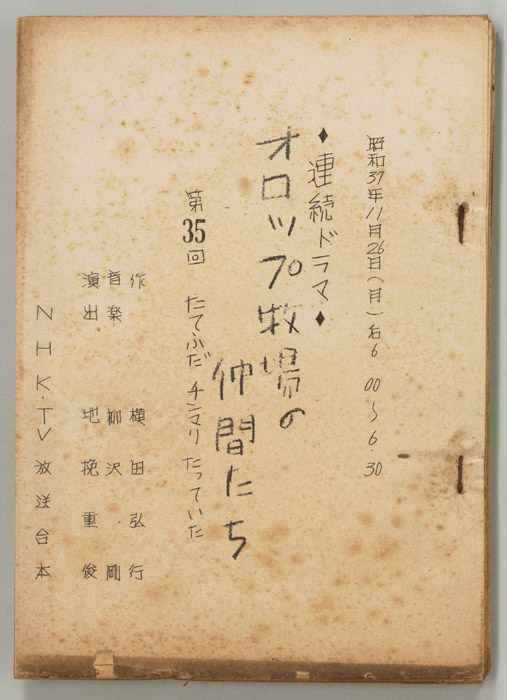 昭和37年11月26日(月)后6.00〜6.30
♦連続ドラマ♦
オロップ牧場の
仲間たち
第35回 たてふだ チンマリ たっていた
作 横田弘行
音楽 柳沢剛
演出 地挽重俊
NHK・TV放送台本